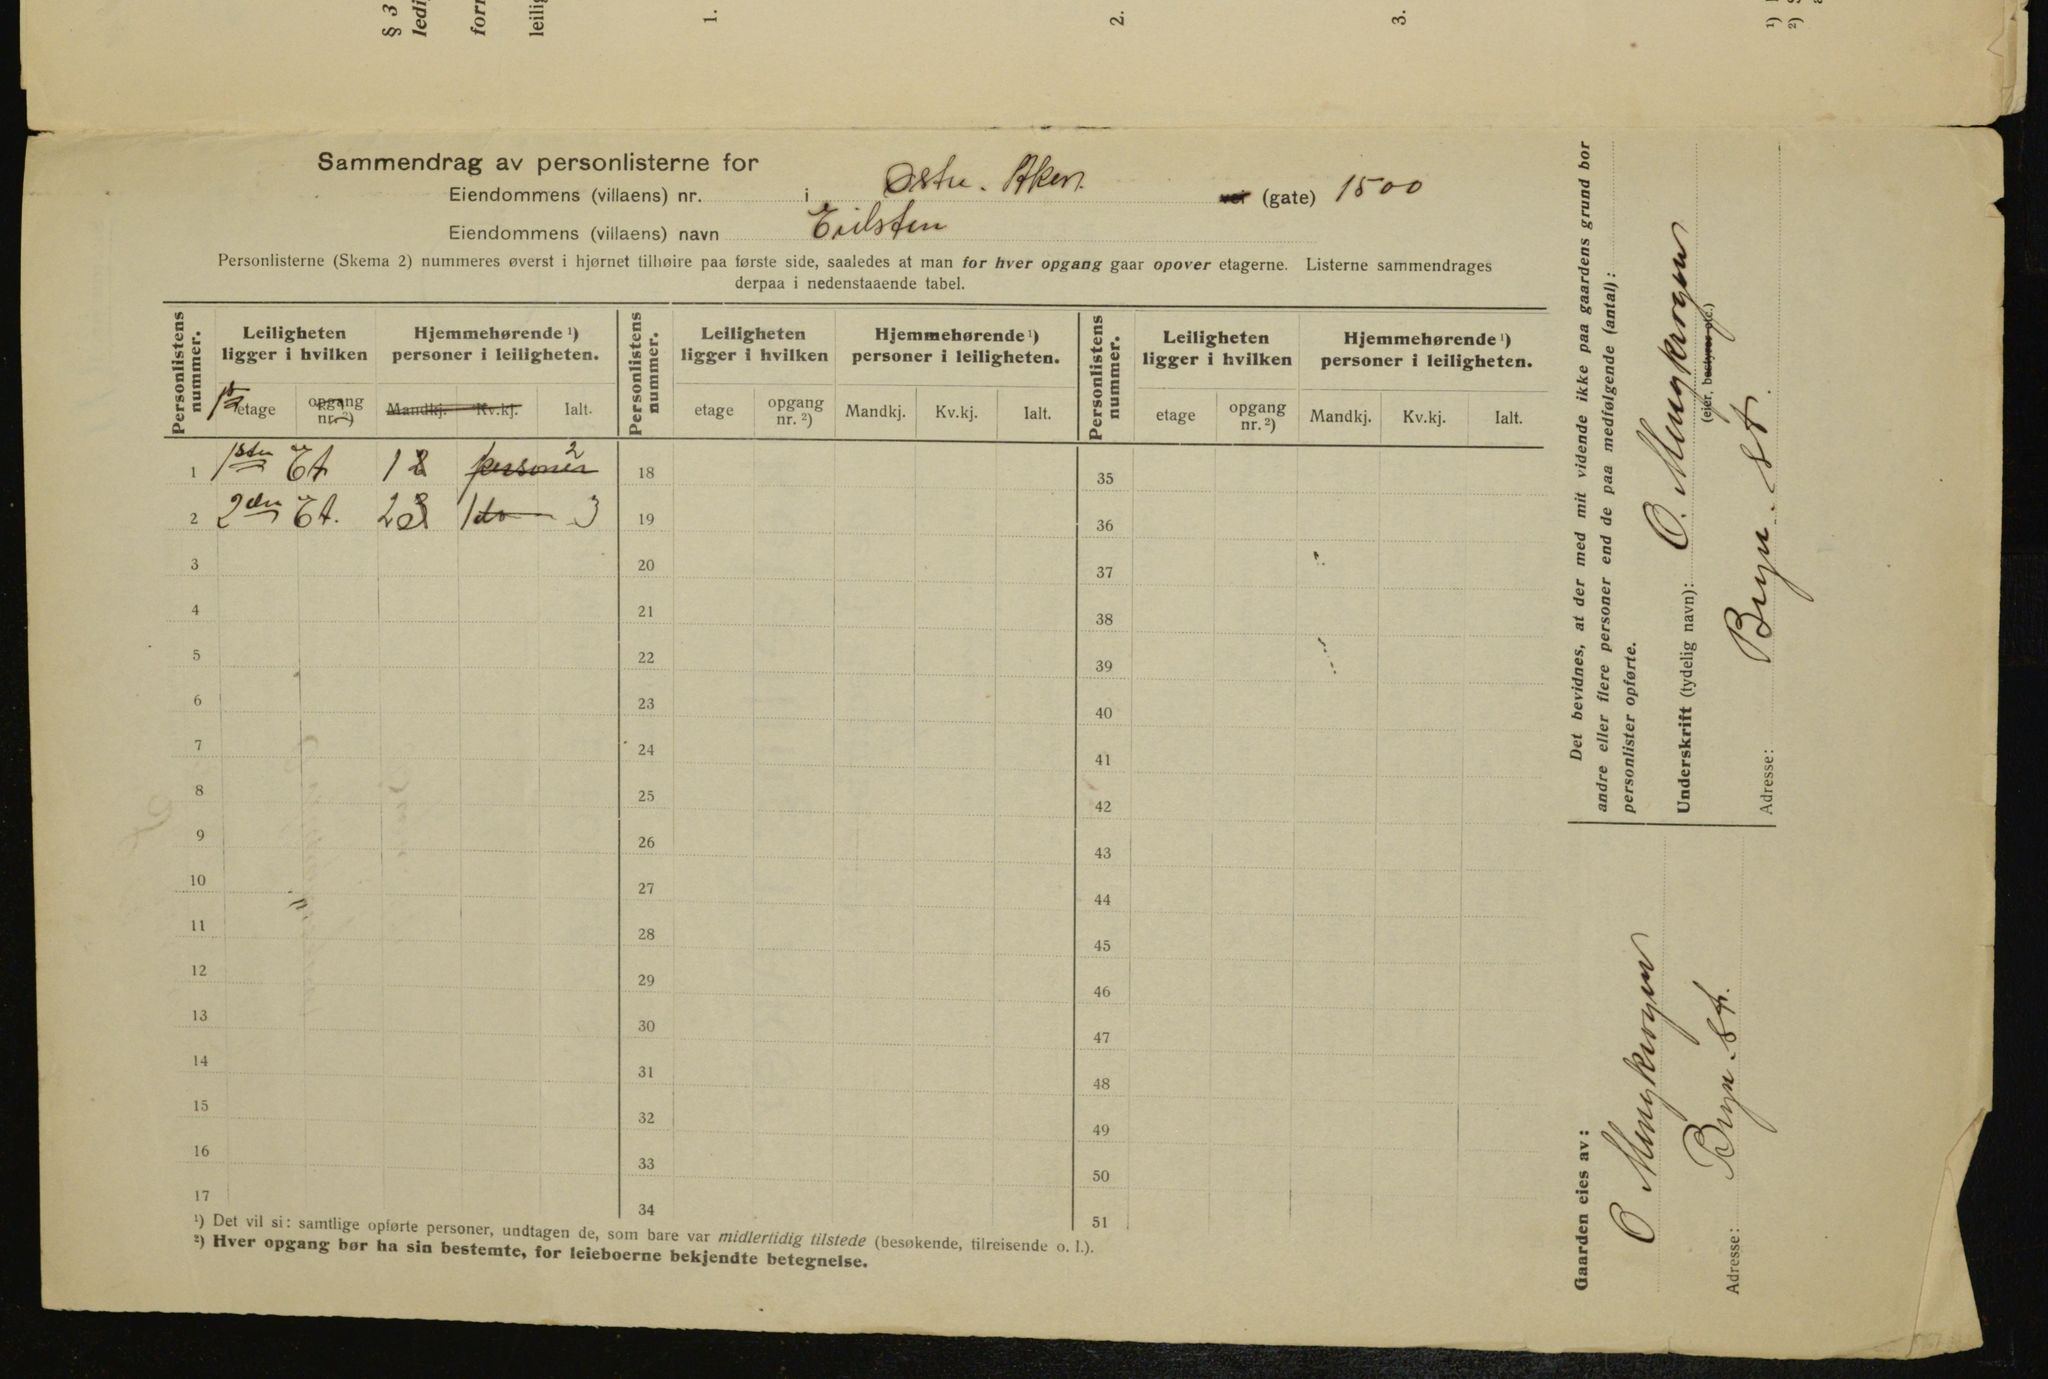 § 3
1.
2.
3.
1)
2)
Sammendrag av personlisterne for
Eiendommens (villaens) nr. i Østre. Aker. vei (gate) 1500
Eiendommens (villaens) navn
Personlisterne (Skema 2) nummeres øverst i hjørnet tilhøire paa første side, saaledes at man for hver opgang gaar opover etagerne. Listerne sammendrages
derpaa i nedenstaaende tabel.
Personlistens nummer. Leiligheten ligger i hvilken Hjemmehørende 1) personer i leiligheten. Personlistens nummer. Leiligheten ligger i hvilken Hjemmehørende 1) personer i leiligheten. Personlistens nummer. Leiligheten ligger i hvilken Hjemmehørende 1) personer i leiligheten.
etage opgang nr. 2) Mandkj. Kv.kj. Ialt. etage opgang nr. 2) Mandkj. Kv.kj. Ialt. etage opgang nr. 2) Mandkj. Kv.kj. Ialt.
1 1ste Et 1 1 personer 2 18 35
2 2den Et. 2 1 do 3 19 36
3 20 37
4 21 38
5 22 39
6 23 40
7 24 41
8 25 42
9 26 43
10 27 44
11 28 45
12 29 46
13 30 47
14 31 48
15 32 49
16 33 50
17 34 51
1) Det vil si: samtlige opførte personer, undtagen de, som bare var midlertidig tilstede (besøkende, tilreisende o. l.).
2) Hver opgang bør ha sin bestemte, for leieboerne bekjendte betegnelse.
Det bevidnes, at der med mit vidende ikke paa gaardens grund bor
andre eller flere personer end de paa medfølgende (antal):
personlister opførte.
Underskrift (tydelig navn): O. Mengkrogen
(eier, bestyrer etc.)
Adresse: Bryn. St.
Gaarden eies av:
O Mengkrogen
Adresse: Bryn. St.